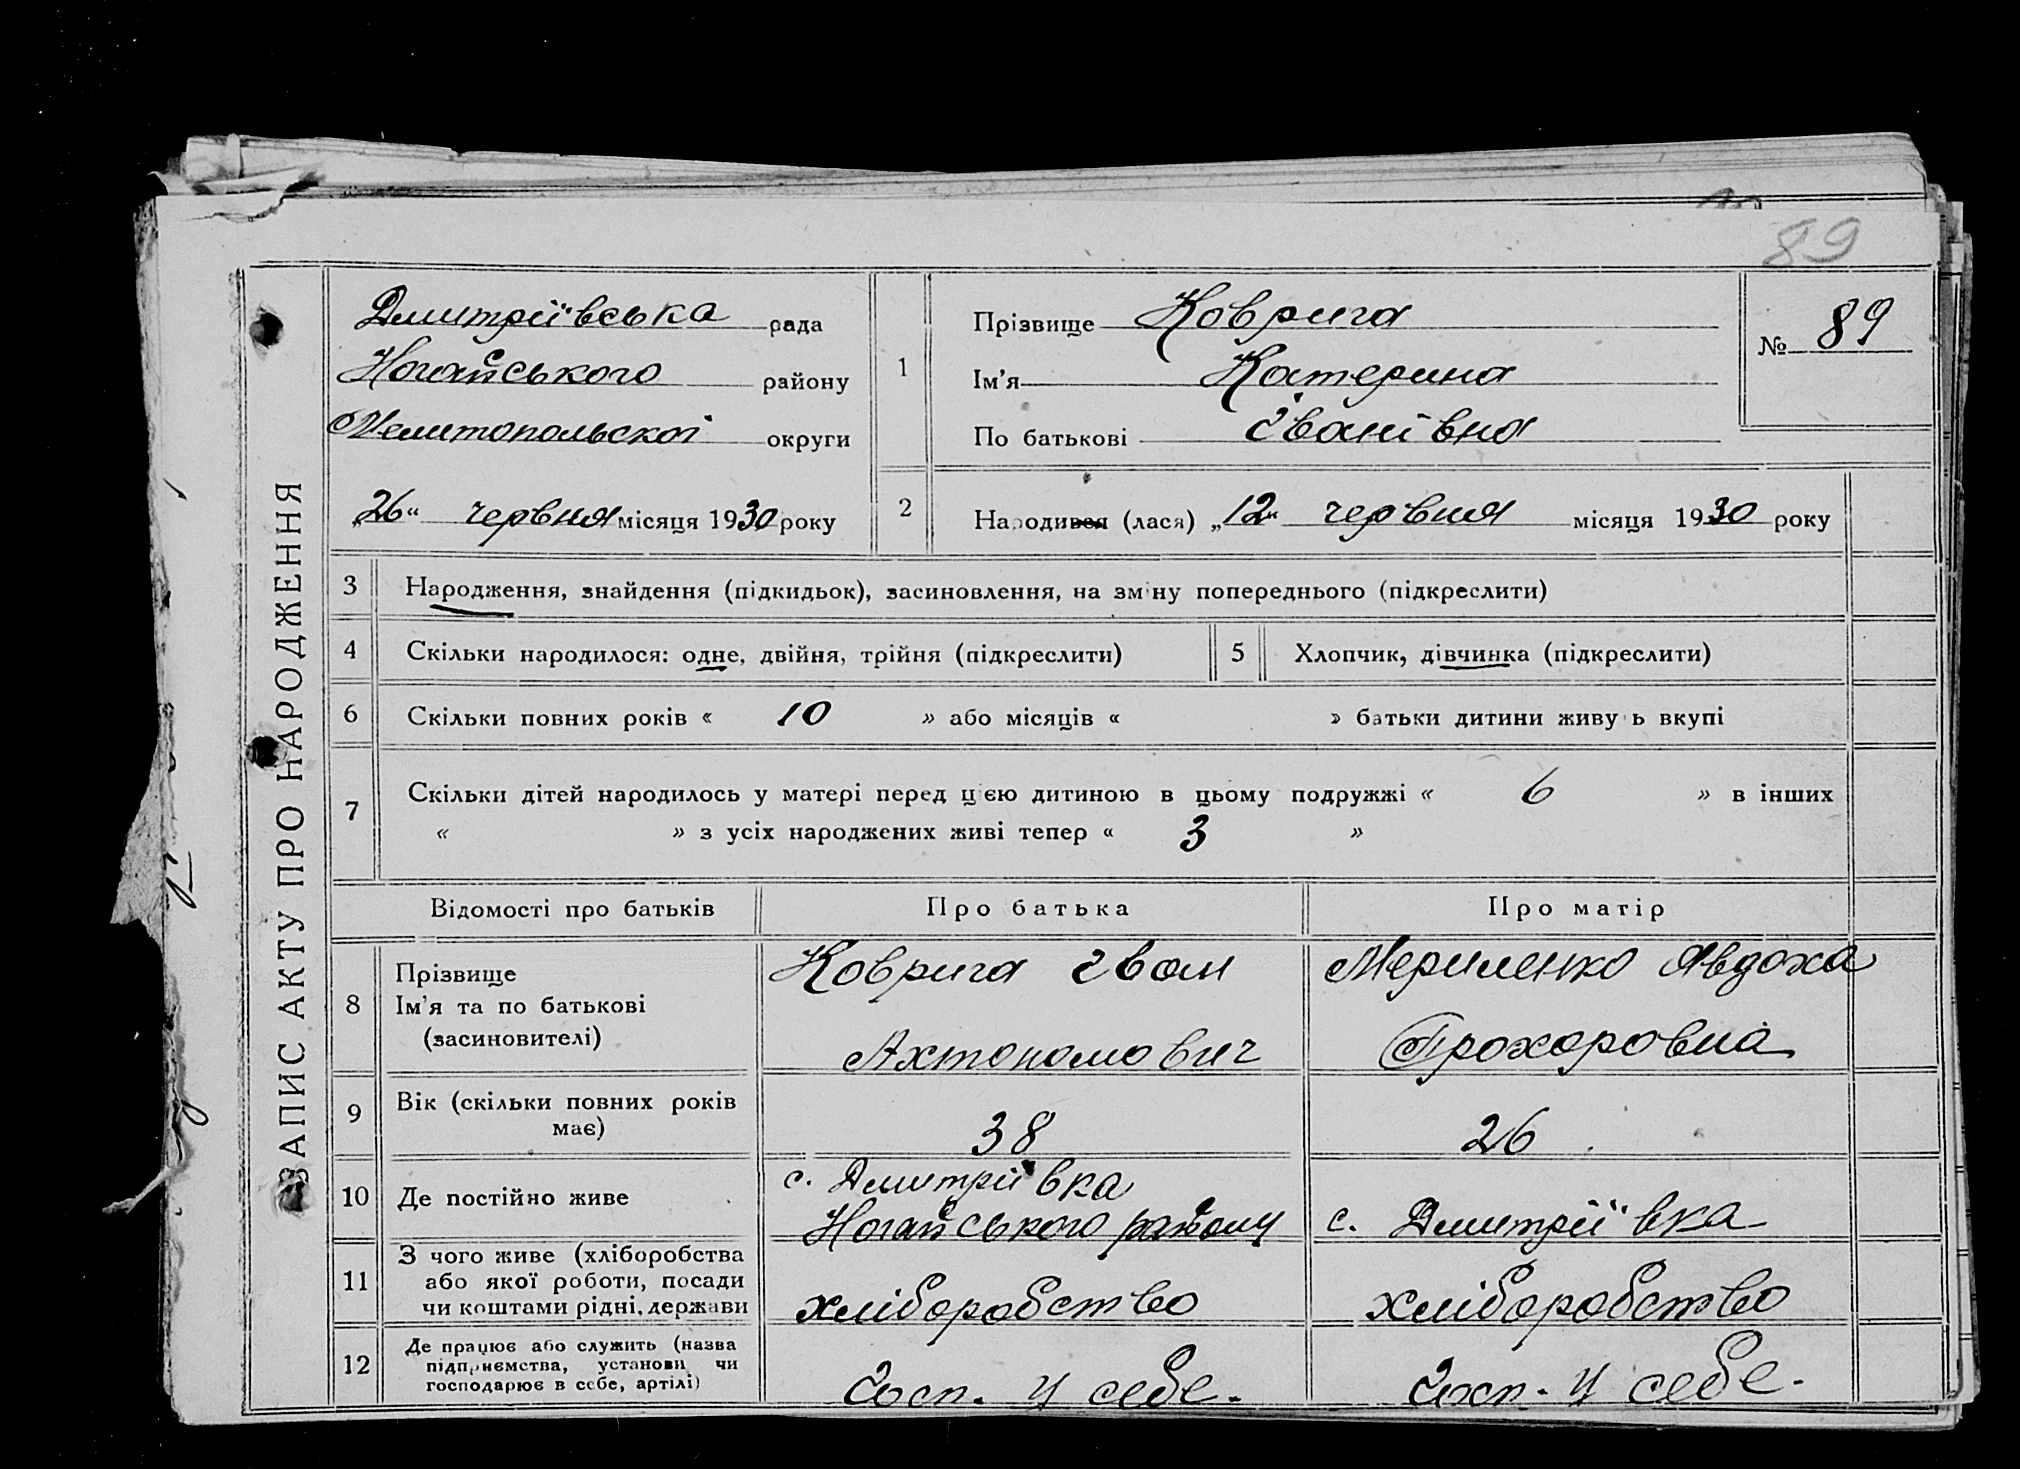 89
ЗАПИС АКТУ ПРО НАРОДЖЕННЯ
Дмитріївська рада
Ногайського району
Мелитопольскої округи
„26“ червня місяця 1930 року
1
Прізвище Коврига
Ім'я Катерина
По батькові Іванівна
№ 89
2
Народився (лася) „12“ червня місяця 1930 року
3 Народження, знайдення (підкидьок), засиновлення, на зміну попереднього (підкреслити)
4 Скільки народилося: одне, двійня, трійня (підкреслити)
5 Хлопчик, дівчинка (підкреслити)
6 Скільки повних років « 10 » або місяців « » батьки дитини живуть вкупі
7 Скільки дітей народилось у матері перед цією дитиною в цьому подружжі « 6 » в інших
« » з усіх народжених живі тепер « 3 »
Відомості про батьків Про батька Про матір
8 Прізвище
Ім'я та по батькові
(засиновителі)
Коврига Іван
Ахтономович
Мериленко Явдоха
Прохоровна
9 Вік (скільки повних років
має)
38
26
10 Де постійно живе
с. Дмитріївка
Ногайського району
с. Дмитріївка
11 З чого живе (хліборобства
або якої роботи, посади
чи коштами рідні, держави
хліборобство
хліборобство
12 Де працює або служить (назва
підприємства, установи чи
господарює в себе, артілі)
Госп. у себе.
Госп. у себе.